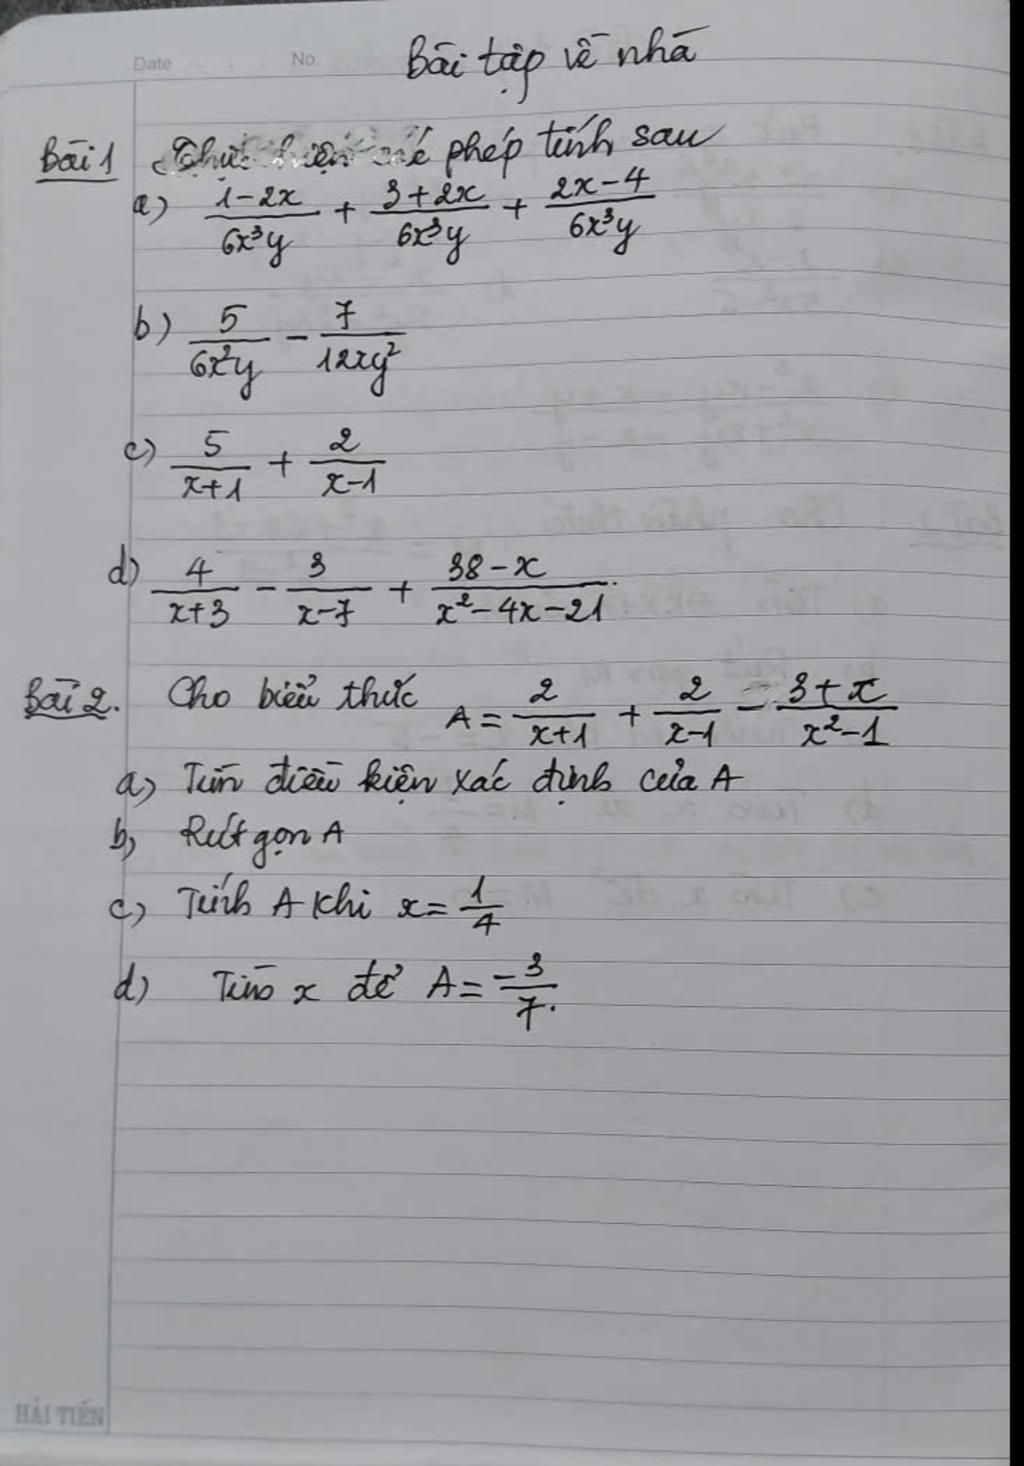 Date No.
Bài tập về nhà
Bài 1 Thực hiện các phép tính sau
a) \frac{1-2x}{6x^3y} + \frac{3+2x}{6x^3y} + \frac{2x-4}{6x^3y}
b) \frac{5}{6x^2y} - \frac{7}{12xy^2}
c) \frac{5}{x+1} + \frac{2}{x-1}
d) \frac{4}{x+3} - \frac{3}{x-7} + \frac{38-x}{x^2-4x-21}.
Bài 2. Cho biểu thức A = \frac{2}{x+1} + \frac{2}{x-1} - \frac{3+x}{x^2-1}
a) Tìm điều kiện xác định của A
b) Rút gọn A
c) Tính A khi x = \frac{1}{4}
d) Tìm x để A = \frac{-3}{7}.
HẢI TIẾN